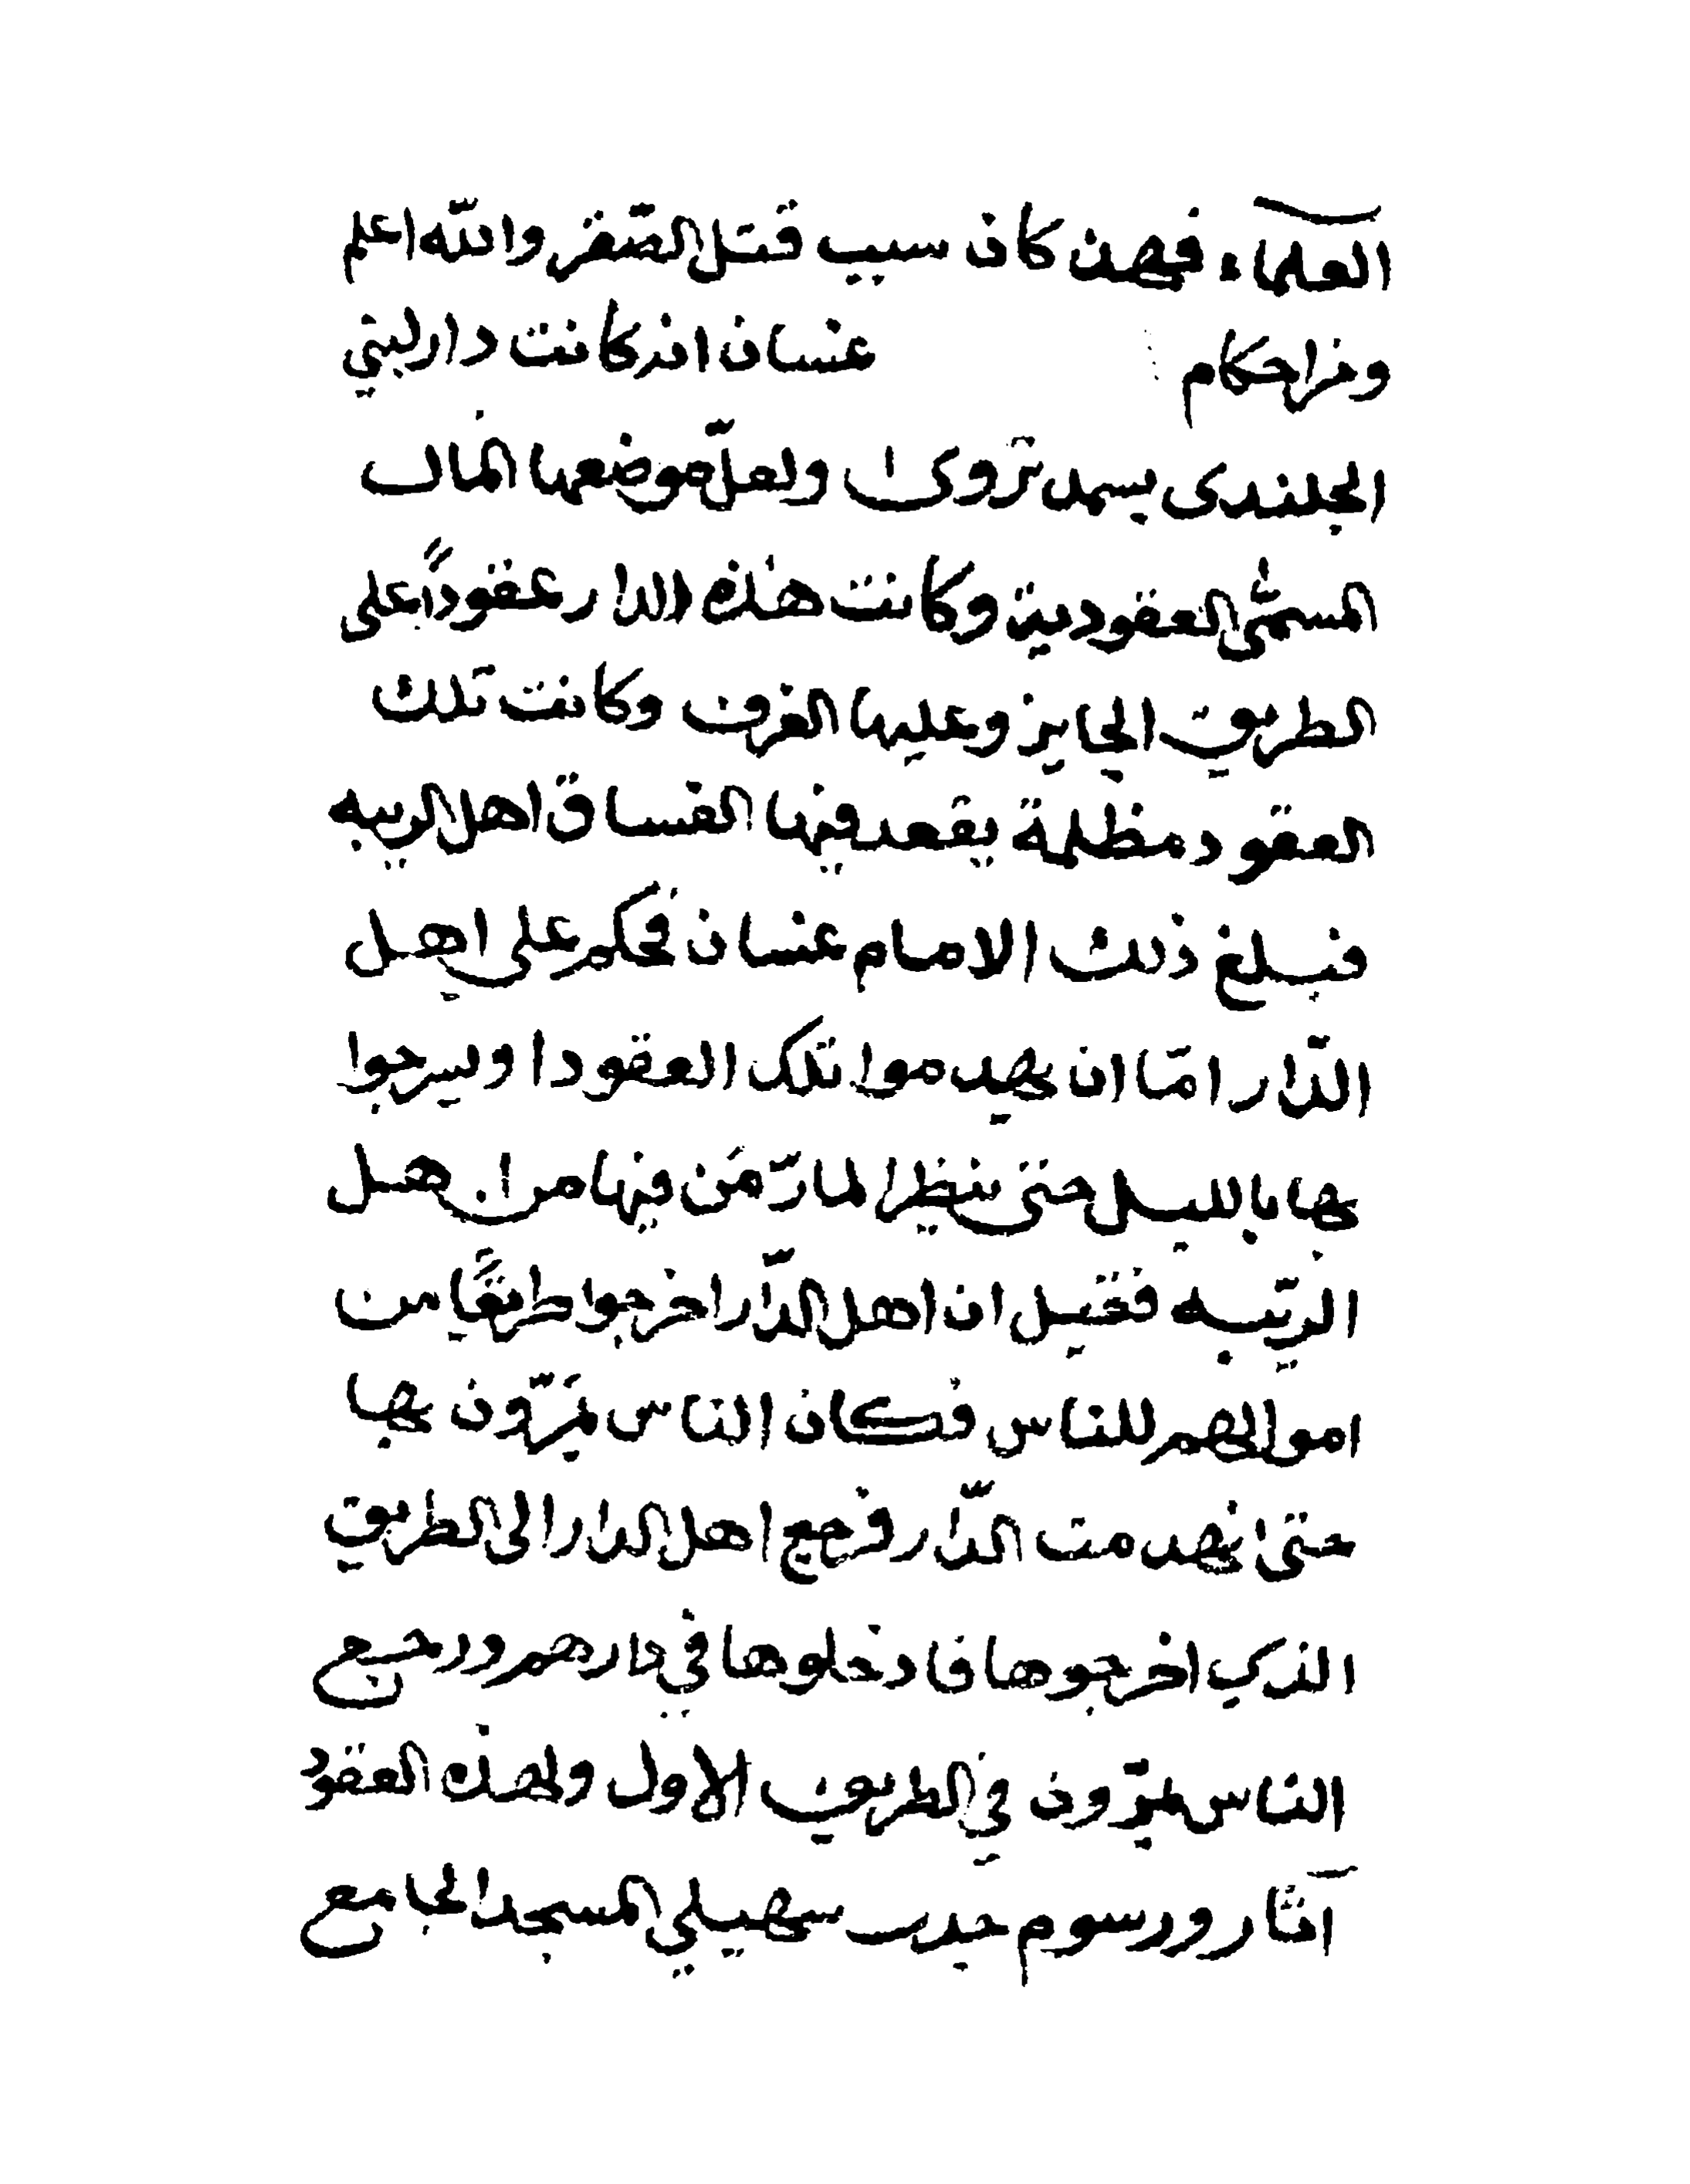 العلماء فهذا كان سبب قتل الصقر والله اعلم
ومن احكام غسان انه كانت دار لبني
الجلندى بسمد نزوى ولعل موضعها المال
المسمّى العقودية وكانت هذه الدار عقودًا على
الطريق الجايز وعليها الغرف وكانت تلك
العقود مظلمة يقعد فيها الفساق اهل الريبه
فبلغ ذلك الامام غسان فحكم على اهل
الدّار امّا ان يهدموا تلك العقود او يسرجوا
بها بالليل حتى ينظر المارّ مَن فيها من اهل
الرّيبه فقيل ان اهل الدّار اخرجوا طريقًا من
اموالهم للناس فكان الناس يَمرّون بها
حتى انهدمت الدّار فرجع اهل الدار الى الطريق
الذي اخرجوها فادخلوها في دارهم ورجع
الناس يمرّون في الطريق الاول ولهذه العقود
آثار ورسوم سهيلي المسجد الجامع